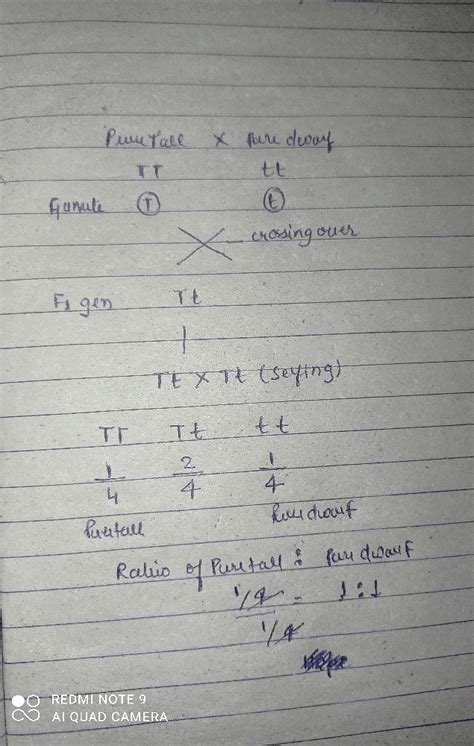 Pure Tall × Pure dwarf
TT tt
Gamate T t
crossing over
F1 gen Tt
Tt × Tt (selfing)
TT Tt tt
1/4 2/4 1/4
Puretall Pure dwarf
Ratio of Puretall : Pure dwarf
1/4 = 1:1
1/4
REDMI NOTE 9
AI QUAD CAMERA